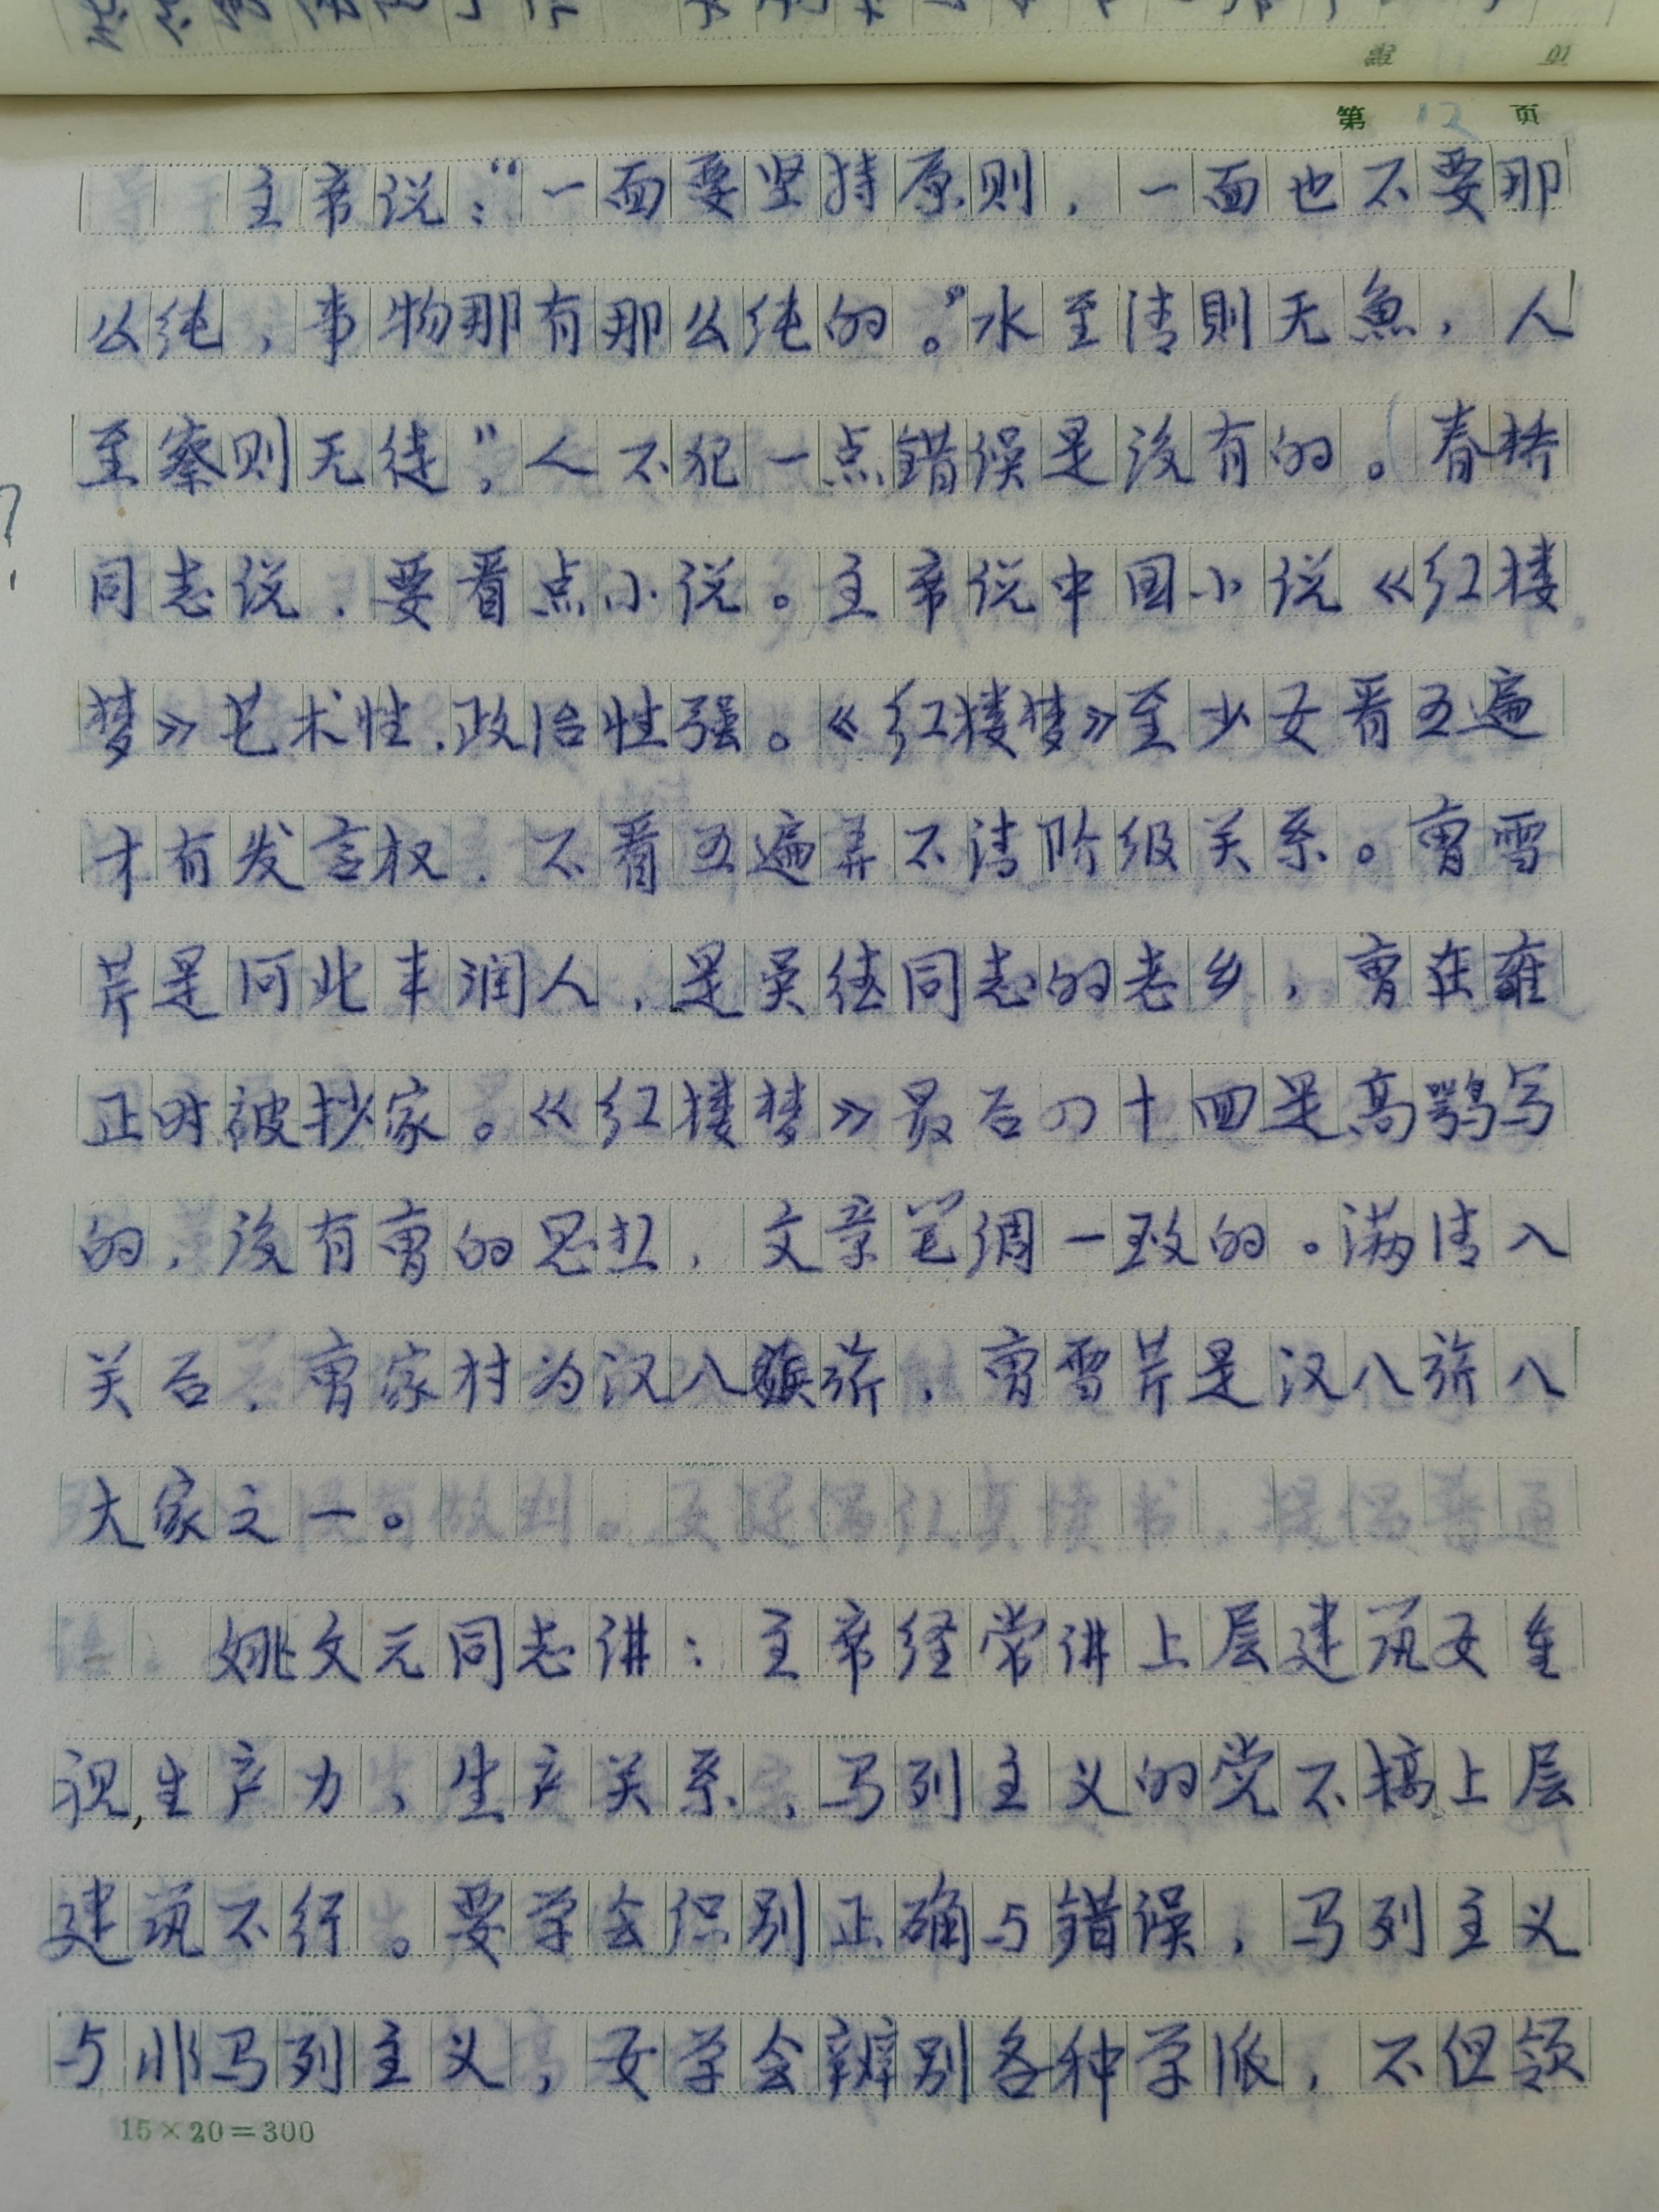 第 12 页
主席说：“一面要坚持原则，一面也不要那
么纯，事物那有那么纯的。”水至清則无魚，人
至察则无徒”，人不犯一点错误是没有的。（春桥
同志说，要看点小说。主席说中国小说《红楼
梦》艺术性，政治性强。《红楼梦》至少女看五遍
才有发言权，不看五遍弄不清阶级关系。曹雪
芹是河北丰润人，是吴德同志的老乡，曹在雍
正时被抄家。《红楼梦》最后四十回是高鹗写
的，没有曹的思想，文章笔调一致的。满清入
关后，曹家封为汉八旗，曹雪芹是汉八旗八
大家之一。
姚文元同志讲：主席经常讲上层建筑女重
视，生产力，生产关系，马列主义的党不搞上层
建筑不行。要学会识别正确与错误，马列主义
与非马列主义，女学会辨别各种学派，不但领
15×20=300